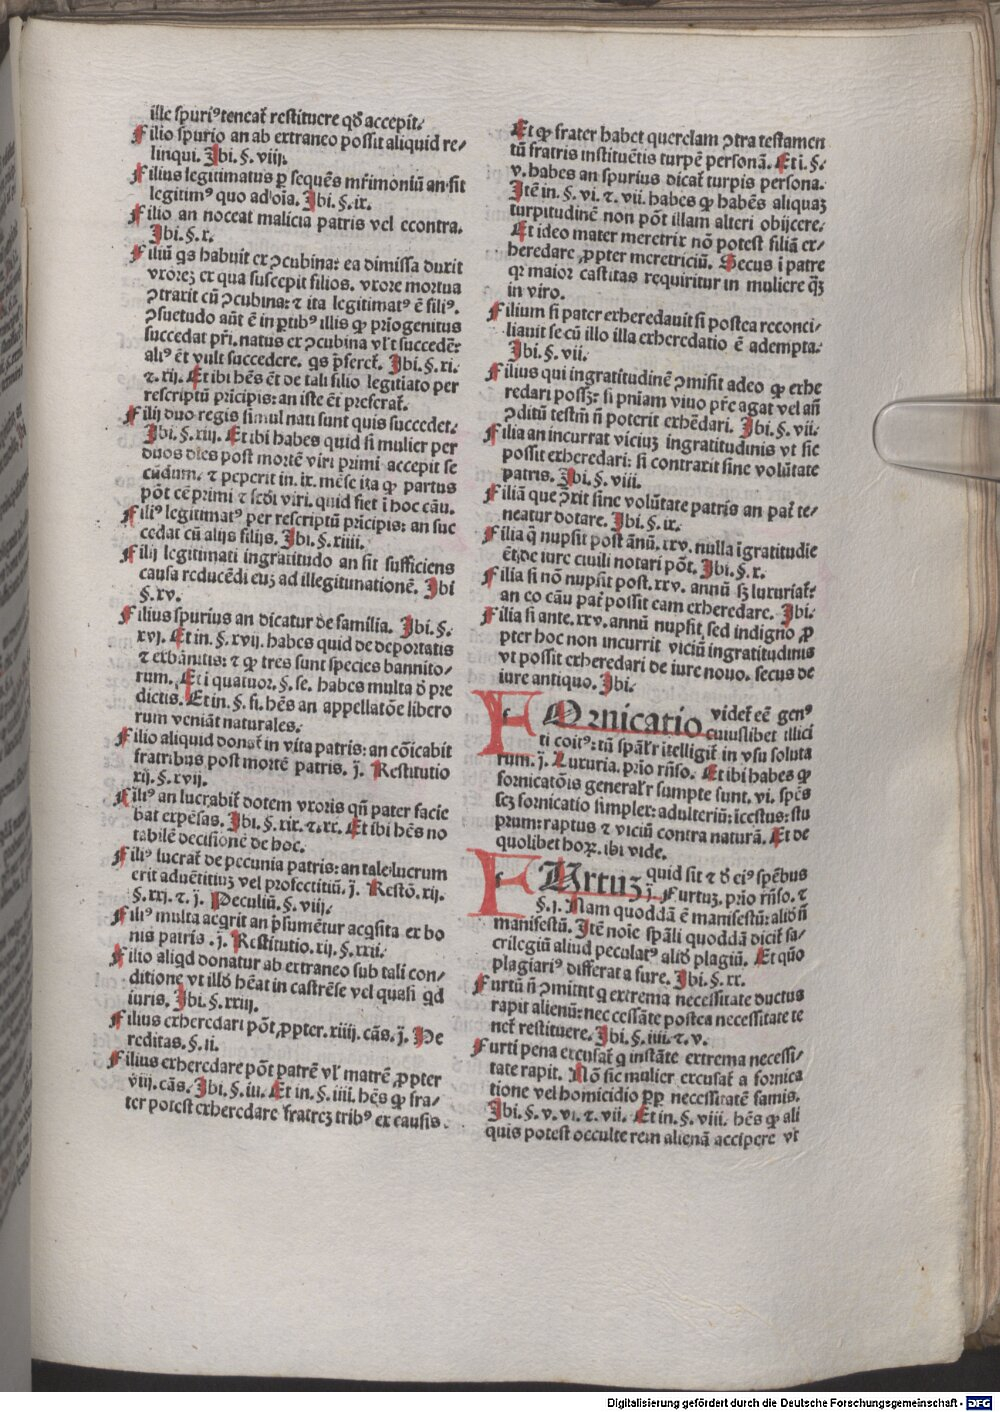 ille spuriꝰ teneat̃ restituere qđ accepit.
Filio spurio an ab extraneo possit aliquid re⸗
linqui. Ibi. §. viij.
Filius legitimatus ꝑ sequẽs mr̃imoniũ an sit
legitimꝰ quo ad oĩa. Ibi. §. ix.
Filio an noceat malicia patris vel econtra.
Ibi. §. x.
Filiũ qs habuit ex ꝯcubina: ea dimissa duxit
vxorez ex qua suscepit filios. vxore mortua
ꝯtraxit cũ ꝯcubina: ⁊ ita legitimatꝰ ẽ filiꝰ.
ꝯsuetudo aũt ẽ in ꝑtibꝰ illis ꝙ prĩogenitus
succedat pr̃i. natus ex ꝯcubina vl't succedẽ:
aliꝰ ẽt vult succedere. qs p̃feret̃. Ibi. §. xi.
⁊. xij. Et ibi hẽs ẽt de tali filio legitiato per
rescriptũ prĩcipis: an iste ẽt preferat̃.
Filij duo regis simul nati sunt quis succedet.
Ibi. §. xiij. Et ibi habes quid si mulier per
duos dies post mortẽ viri primi accepit se
cũdum. ⁊ peperit in. ix. mẽse ita ꝙ partus
põt eẽ primi ⁊ scđi viri. quid fiet ĩ hoc cãu.
Filiꝰ legitimatꝰ per rescriptũ prĩcipis: an suc
cedat cũ alijs filijs. Ibi. §. xiiij.
Filij legitimati ingratitudo an sit sufficiens
causa reducẽdi euz ad illegitimationẽ. Ibi
§. xv.
Filius spurius an dicatur de familia. Ibi. §.
xvj. Et in. §. xvij. habes quid de deportatis
⁊ exbãnitis: ⁊ ꝙ tres sunt species bannito⸗
rum. Et i quatuor. §. se. habes multa đ pre
dictis. Et in. §. fi. hẽs an appellatõe libero
rum veniãt naturales.
Filio aliquid donat̃ in vita patris: an cõicabit
fratribus post mortẽ patris. j̃. Restitutio
xij. §. xvij.
Filiꝰ an lucrabit̃ dotem vxoris qñ pater facie
bat expẽsas. Ibi. §. xix. ⁊. xx. Et ibi hẽs no
tabilẽ decisionẽ de hoc.
Filiꝰ lucrat̃ de pecunia patris: an tale lucrum
erit aduẽtitiuz vel profectitiũ. j̃. Restõ. xij.
§. xxj. ⁊. j̃. Peculiũ. §. viij.
Filiꝰ multa acq̃rit an p̃sumẽtur acq̃sita ex bo
nis patris. j̃. Restitutio. xij. §. xxij.
Filio aliqd donatur ab extraneo sub tali con⸗
ditione vt illđ hẽat in castrẽse vel quasi qd
iuris. Ibi. §. xxiij.
Filius exheredari põt ꝓpter. xiiij. cãs. j̃. De
reditas. §. ii.
Filius exheredare põt patrẽ vl' matrẽ ꝓpter
viij. cãs. Ibi. §. iij. Et in. §. iiij. hẽs ꝙ fra⸗
ter potest exheredare fratrez tribꝰ ex causis.
Et ꝙ frater habet querelam ꝯtra testamen
tũ fratris instituẽtis turpẽ personã. Et i. §.
v. habes an spurius dicat̃ turpis persona.
Itẽ in. §. vi. ⁊. vii. habes ꝙ habẽs aliquaz
turpitudinẽ non põt illam alteri obijcere.
Et ideo mater meretrix nõ potest filiã ex⸗
heredare ꝓpter meretriciũ. Secus ĩ patre
qr maior castitas requiritur in muliere q̃z
in viro.
Filium si pater exheredauit si postea reconci⸗
liauit se cũ illo illa exheredatio ẽ adempta.
Ibi. §. vii.
Filius qui ingratitudinẽ ꝯmisit adeo ꝙ exhe
redari possz: si pniam viuo pr̃e agat vel añ
ꝯditũ testm̃ ñ poterit exhẽdari. Ibi. §. vii.
Filia an incurrat viciuz ingratitudinis vt sic
possit exheredari: si contraxit sine volũtate
patris. Ibi. §. viii.
Filiã que ꝯxit sine volũtate patris an pat̃ te⸗
neatur dotare. Ibi. §. ix.
Filia q̃ nupsit post ãnũ. xxv. nulla ĩgratitudĩe
ẽt de iure ciuili notari põt. Ibi. §. x.
Filia si nõ nupsit post. xxv. annũ sz luxuriat̃:
an eo cãu pat̃ possit eam exheredare. Ibi.
Filia si ante. xxv. annũ nupsit, sed indigno ꝓ
pter hoc non incurrit viciũ ingratitudinis
vt possit exheredari de iure nouo. secus de
iure antiquo. Ibi.
FOrnicatio videt̃ eẽ genꝰ
cuiuslibet illici
ti coitꝰ: tñ spãl'r ĩtelligit̃ in vsu soluta
rum. j̃. Luxuria. prĩo rñso. Et ibi habes ꝙ
fornicatõis general'r sumpte sunt. vi. spẽs
scz fornicatio simplex: adulteriũ: ĩcestus: stu
prum: raptus ⁊ viciũ contra naturã. Et de
quolibet hoꝝ. ibi vide.
FUrtuz quid sit ⁊ đ eiꝰ spẽbus
j̃. Furtuz. prĩo rñso. ⁊
§. j. Nam quoddã ẽ manifestũ: aliđ ñ
manifestũ. Itẽ noĩe spãli quoddã dicit̃ sa⸗
crilegiũ aliud peculatꝰ aliđ plagiũ. Et quõ
plagiariꝰ differat a fure. Ibi. §. xx.
Furtũ ñ ꝯmittit q extrema necessitate ductus
rapit alienũ: nec cessãte postea necessitate te
net̃ restituere. Ibi. §. iiij. ⁊. v.
Furti pena excusat̃ q instãte extrema necessi⸗
tate rapit. Nõ sic mulier excusat̃ a fornica
tione vel homicidio ꝑp necessitatẽ famis.
Ibi. §. v. vi. ⁊. vii. Et in. §. viii. hẽs ꝙ ali
quis potest occulte rem alienã accipere vt
Digitalisierung gefördert durch die Deutsche Forschungsgemeinschaft - DFG